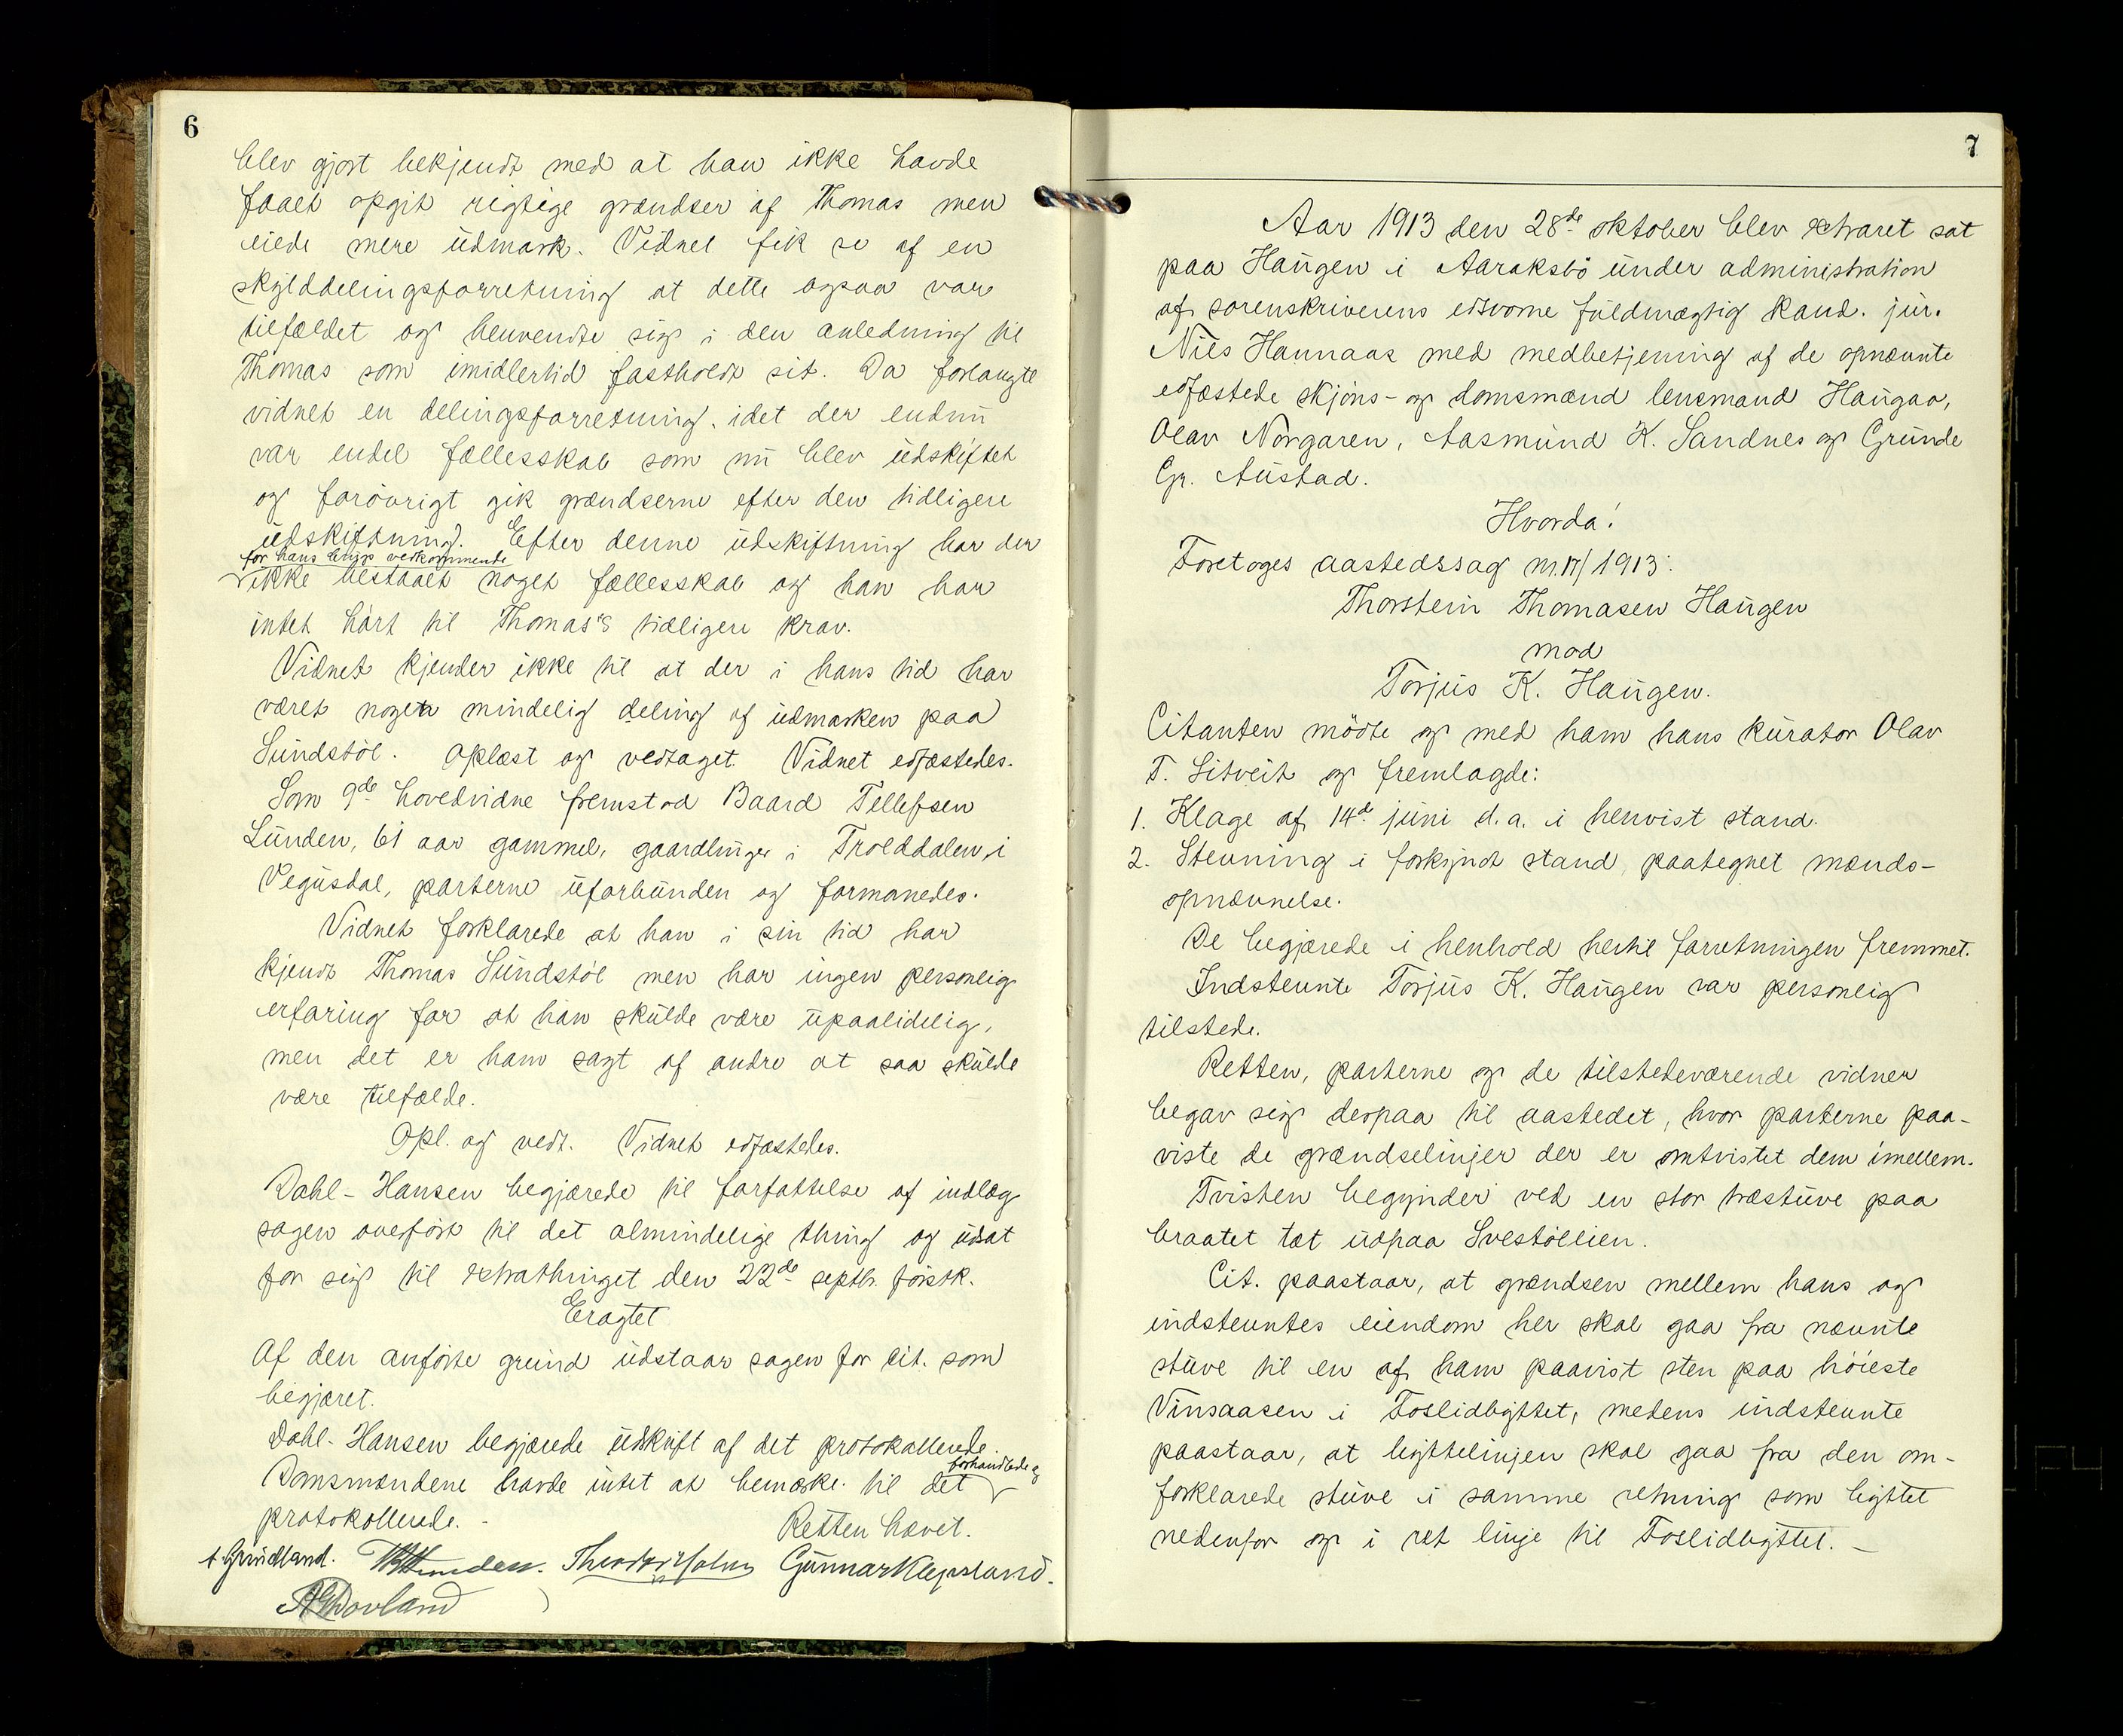 6
blev gjort bekjendt med at han ikke havde
faaet opgit rigtige grændser af Thomas men
eiede mere udmark. Vidnet fik se af en
skylddelingsforretning at dette ogsaa var
tilfældet og henvendte sig i den anledning til
Thomas som imidlertid fastholdt sit. Da forlangte
vidnet en delingsforretning, idet der endnu
var endel fællesskab som nu blev udskiftet
og forövrigt gik grændserne efter den tidligere
udskiftning. Efter denne udskiftning har der
for hans brugs vedkommende
ikke bestaaet noget fællesskab og han har
intet hört til Thomas's tidligere krav.
Vidnet kjender ikke til at der i hans tid har
været nogen mindelig deling af udmarken paa
Sundstöl. Oplæst og vedtaget. Vidnet edfæstedes.
Som 9de hovedvidne fremstod Baard Tellefsen
Lunden, 61 aar gammel, gaardbruger i Trolddalen i
Vegusdal, parterne uforbunden og formanedes.
Vidnet forklarede at han i sin tid har
kjendt Thomas Sundstöl men har ingen personlig
erfaring for at han skulde være upaalidelig,
men det er ham sagt af andre at saa skulde
være tilfælde.
Opl. og vedt. Vidnet edfæstedes.
Dahl-Hansen begjærede til forfattelse af indlæg
sagen overfört til det almindelige thing og udsat
for sig til extrathinget den 22de septb. förstk.
Eragtet
Af den anförte grund udstaar sagen for cit. som
begjæret.
Dahl-Hansen begjærede udskrift af det protokollerede.
forhandlede og
Domsmændene havde intet at bemærke til det
protokollerede. - Retten hævet.
A. Grundland. Theodor Holm Gunnar Klepsland.
Dovland
7
Aar 1913 den 28de oktober blev extraret sat
paa Haugen i Aaraksbö under administration
af sorenskriverens edsvorne fuldmægtig kand. jur.
Nils Hannaas med medbetjening af de opnævnte
edfæstede skjöns- og domsmænd lensmand Haugaa,
Olav Norgaren, Aasmund K. Sandnes og Grunde
Gr. Austad.
Hvorda!
Foretoges aastedssag nr. 17/1913:
Thorstein Thomasen Haugen
mod
Torjus K. Haugen.
Citanten mödte og med ham hans kurator Olav
T. Litveit og fremlagde:
1. Klage af 14de juni d.a. i henvist stand.
2. Stevning i forkyndt stand, paategnet mænds-
opnævnelse.
De begjærede i henhold hertil forretningen fremmet.
Indstevnte Torjus K. Haugen var personlig
tilstede.
Retten, parterne og de tilstedeværende vidner
begav sig derpaa til aastedet, hvor parterne paa-
viste de grændselinjer der er omtvistet dem imellem.
Tvisten begynder ved en stor træstuve paa
braatet tæt udpaa Svestöllien.
Cit. paastaar, at grændsen mellem hans og
indstevntes eiendom her skal gaa fra nævnte
stuve til en af ham paavist sten paa höieste
Vinsaasen i Foslidbyttet, medens indstevnte
paastaar, at byttelinjen skal gaa fra den om-
forklarede stuve i samme retning som byttet
nedenfor og i ret linje til Foslidbyttet. -